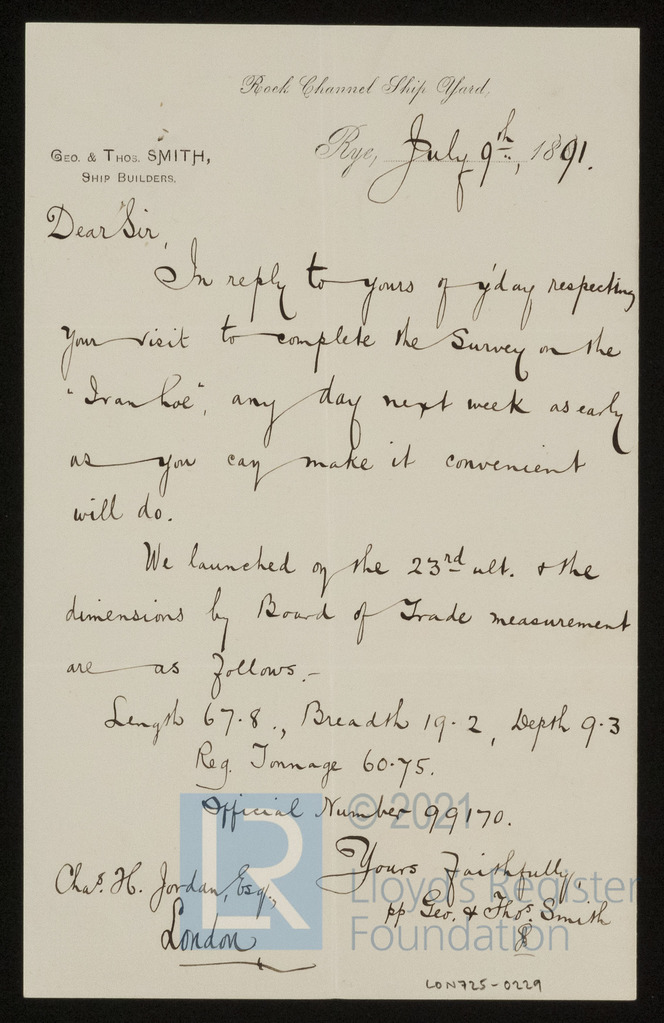 Rock Channel Ship Yard,
Rye, July 9th, 1891.
GEO. & THOS. SMITH,
SHIP BUILDERS.
Dear Sir,
In reply to yours of y'day respecting
your visit to complete the Survey on the
"Ivanhoe", any day next week as early
as you can make it convenient
will do.
We launched on the 23rd ult. & the
dimensions by Board of Trade measurement
are as follows.-
Length 67.8., Breadth 19.2, Depth 9.3
Reg. Tonnage 60.75.
Official Number 99170.
Yours Faithfully,
pp Geo. & Thos. Smith
Chas. H. Jordan, Esq.,
London
LON725-0229
LR
© 2021
Lloyd's Register
Foundation